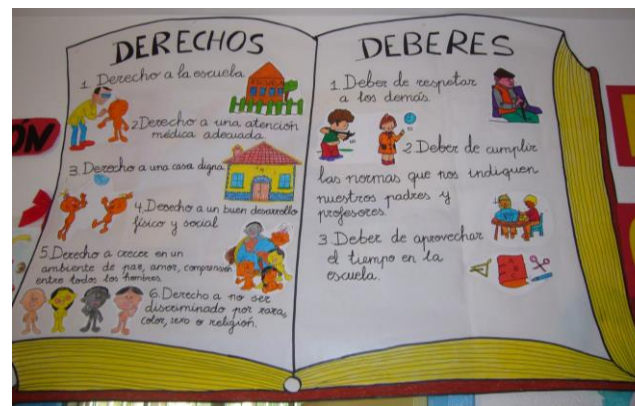 DERECHOS
1 Derecho a la escuela
2 Derecho a una atención
médica adecuada.
3. Derecho a una casa digna.
4. Derecho a un buen desarrollo
físico y social
5. Derecho a crecer en un
ambiente de paz, amor, comprensión
entre todos los hombres.
6. Derecho a no ser
discriminado por raza,
color, sexo o religión.
DEBERES
1 Deber de respetar
a los demás.
2 Deber de cumplir
las normas que nos indiquen
nuestros padres y
profesores.
3 Deber de aprovechar
el tiempo en la
escuela.
ÓN